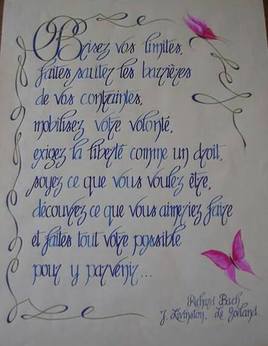 Brisez vos limites,
faites sauter les barrières
de vos contraintes,
mobilisez votre volonté,
exigez la liberté comme un droit,
soyez ce que vous voulez être,
découvrez ce que vous aimeriez faire
et faites tout votre possible
pour y parvenir...
Richard Bach
J. Livinston. Le Goéland.